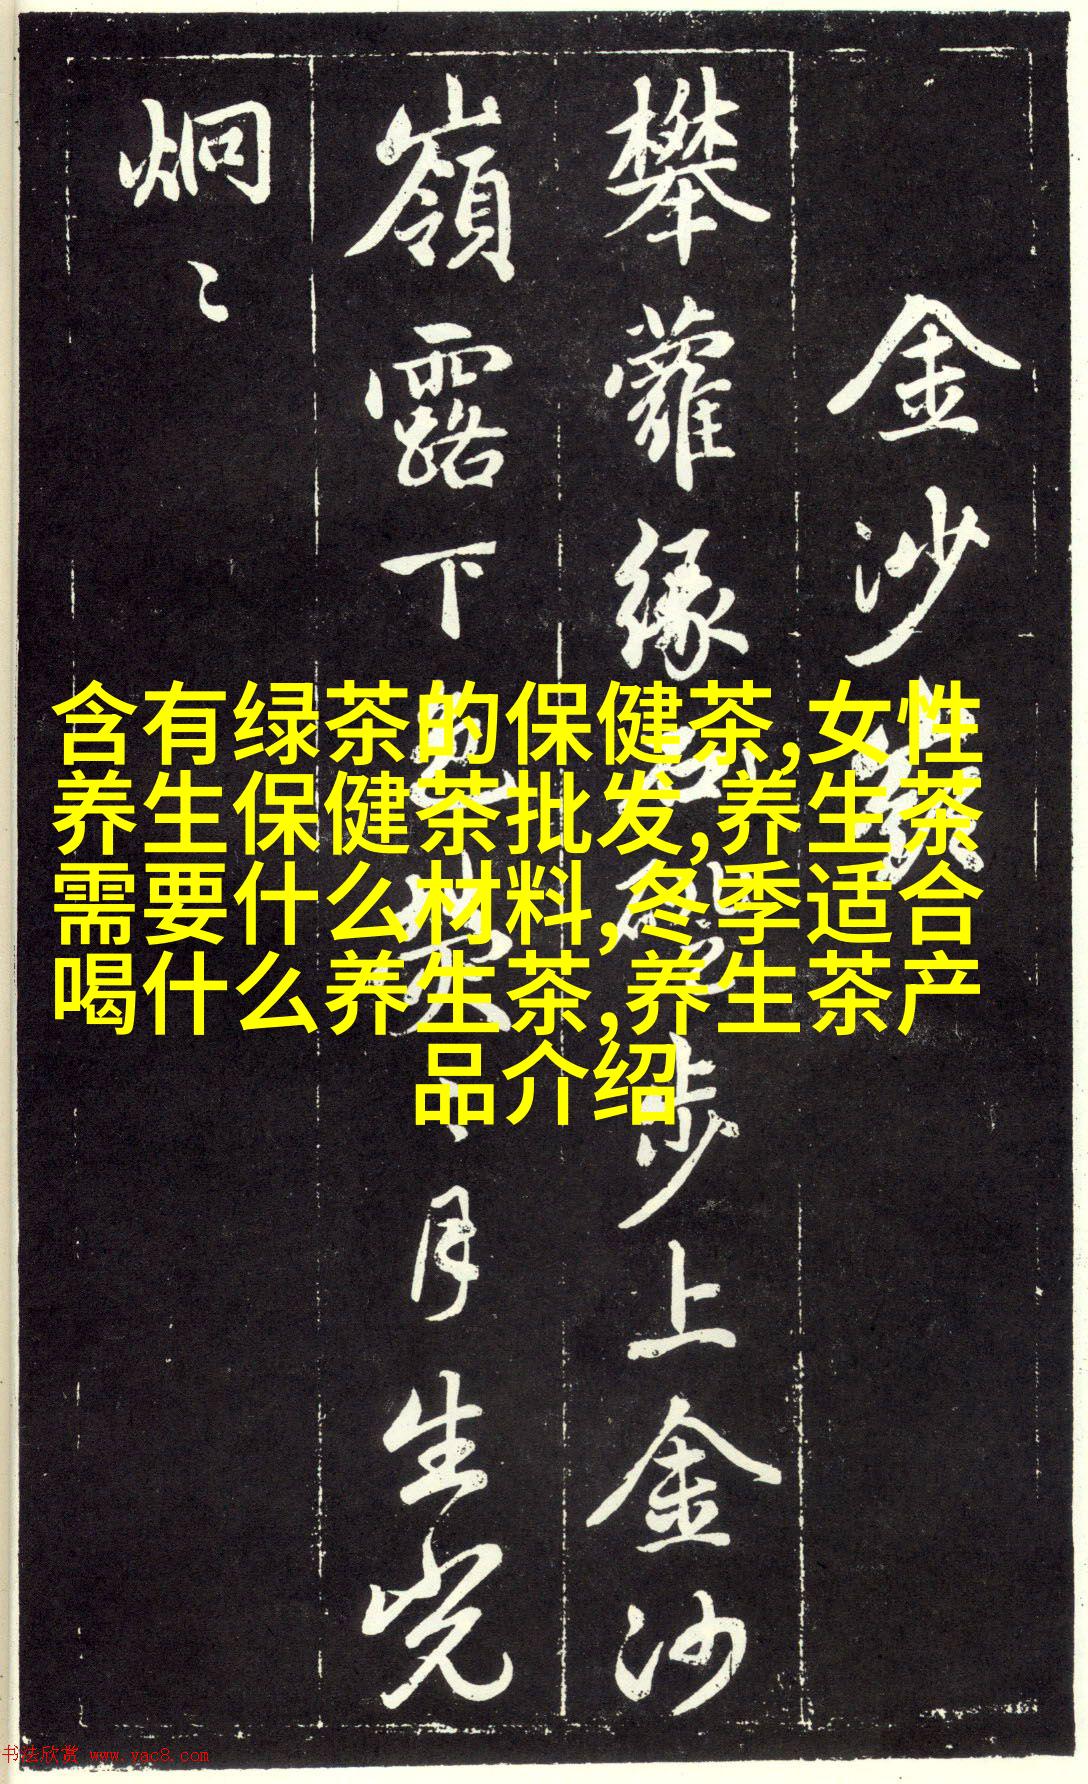 含有绿茶的保健茶,女性
养生保健茶批发,养生茶
需要什么材料,冬季适合
喝什么养生茶,养生茶产
品介绍
金沙
攀蘿緣步上金沙
嶺露下月生光
炯〻
书法欣赏 www.yac8.com